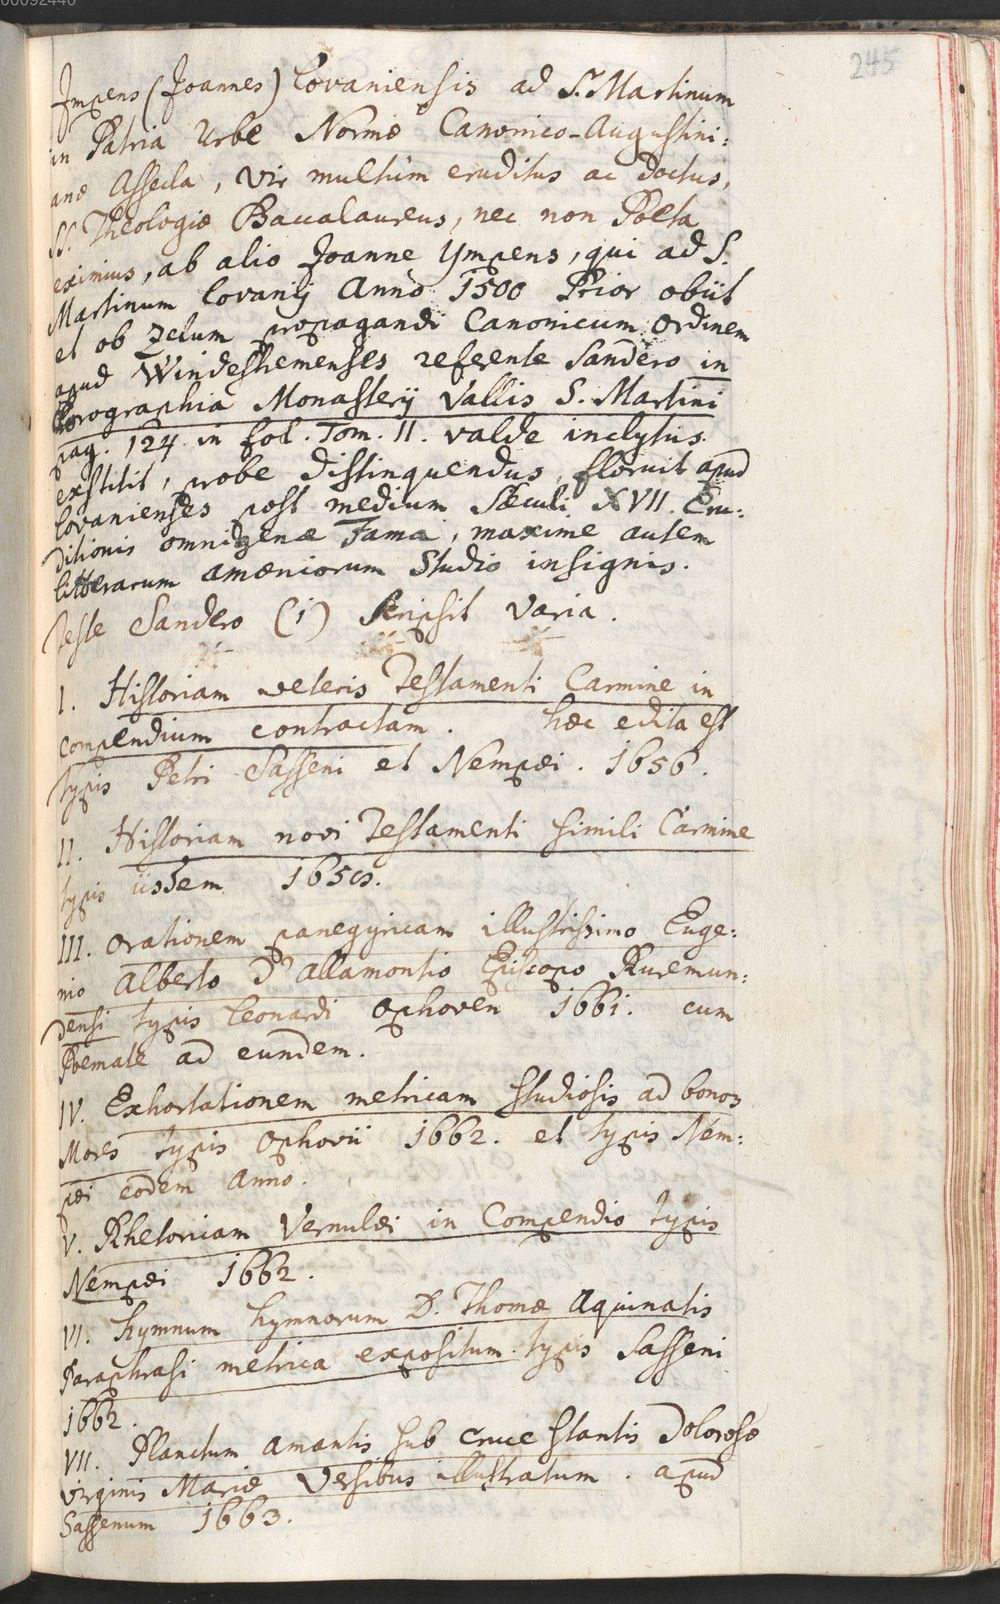 245
Impens (Joannes) Lovaniensis ad S. Martinum
in Patria Urbe Normæ Canonico-Augustini:
anæ Assecla, vir multum eruditus ac Doctus,
SS. Theologiæ Baccalaureus, nec non Poëta
eximius, ab alio Joanne Ympens, qui ad S.
Martinum Lovanij Anno 1500 Prior obiit
et ob Zelum propagandi Canonicum Ordinem
apud Windeshemenses referente Sandero in
Chorographia Monasterij Vallis S. Martini
pag. 124 in fol. Tom. II. valde inclytus
exstitit, probe distinguendus, floruit apud
Lovanienses post medium Sæculi XVII. Eru:
ditionis omnigenæ Fama, maxime autem
litterarum amæniorum Studio insignis.
Teste Sandero (i) Scripsit varia.
I. Historiam veteris Testamenti Carmine in
compendium contractam. hæc edita est
typis Petri Sasseni et Nempæi. 1656.
II. Historiam novi Testamenti simili Carmine
typis iisdem
III. Orationem panegyricam illustrissimo Euge:
nio Alberto D'allamontio Episcopo Ruremun:
densi typis Leonardi Ophoven 1661. cum
Poemate ad eundem.
IV. Exhortationem metricam studiosis ad bonos
Mores typis Ophovii 1662. et typis Nem:
pæi eodem Anno.
V. Rhetoricam Vernulæi in Compendio typis
Nempæi 1662.
VI. hymnum hymnorum D. Thomæ Aquinatis
Paraphrasi metrica expositum. typis Sasseni
1662.
VII. Planctum amantis sub cruce stantis Dolorosæ
virginis Mariæ versibus illustratum. apud
Sassenum 1663.